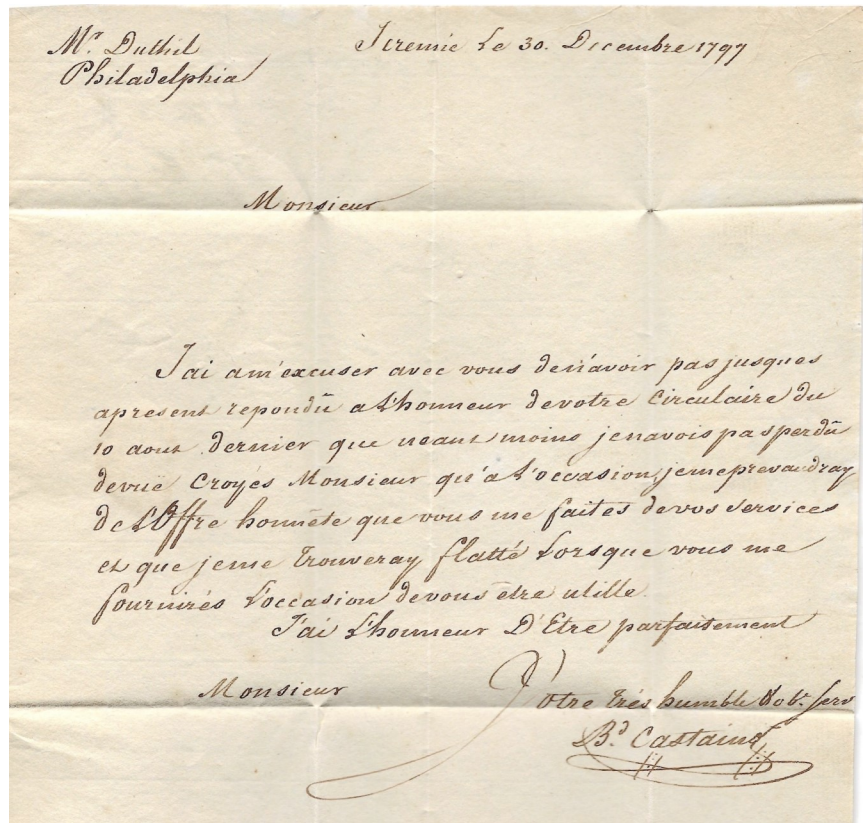 Mr. Duthil
Philadelphia
Jeremie Le 30. Decembre 1797
Monsieur
J'ai a m'excuser avec vous de n'avoir pas jusques
apresent repondû a L'honneur de votre Circulaire du
10 aout dernier que neant moins je navois pas perdû
de vuë Croyés Monsieur qu'a L'occasion, je me prevaudray
de L'Offre honnête que vous me faites de vos services
et que je me trouveray flatté Lorsque vous me
fournirés L'occasion de vous être utille.
J'ai L'honneur D'Etre parfaitement
Monsieur
Votre trés humble & obt. serv
Bd. Castaing